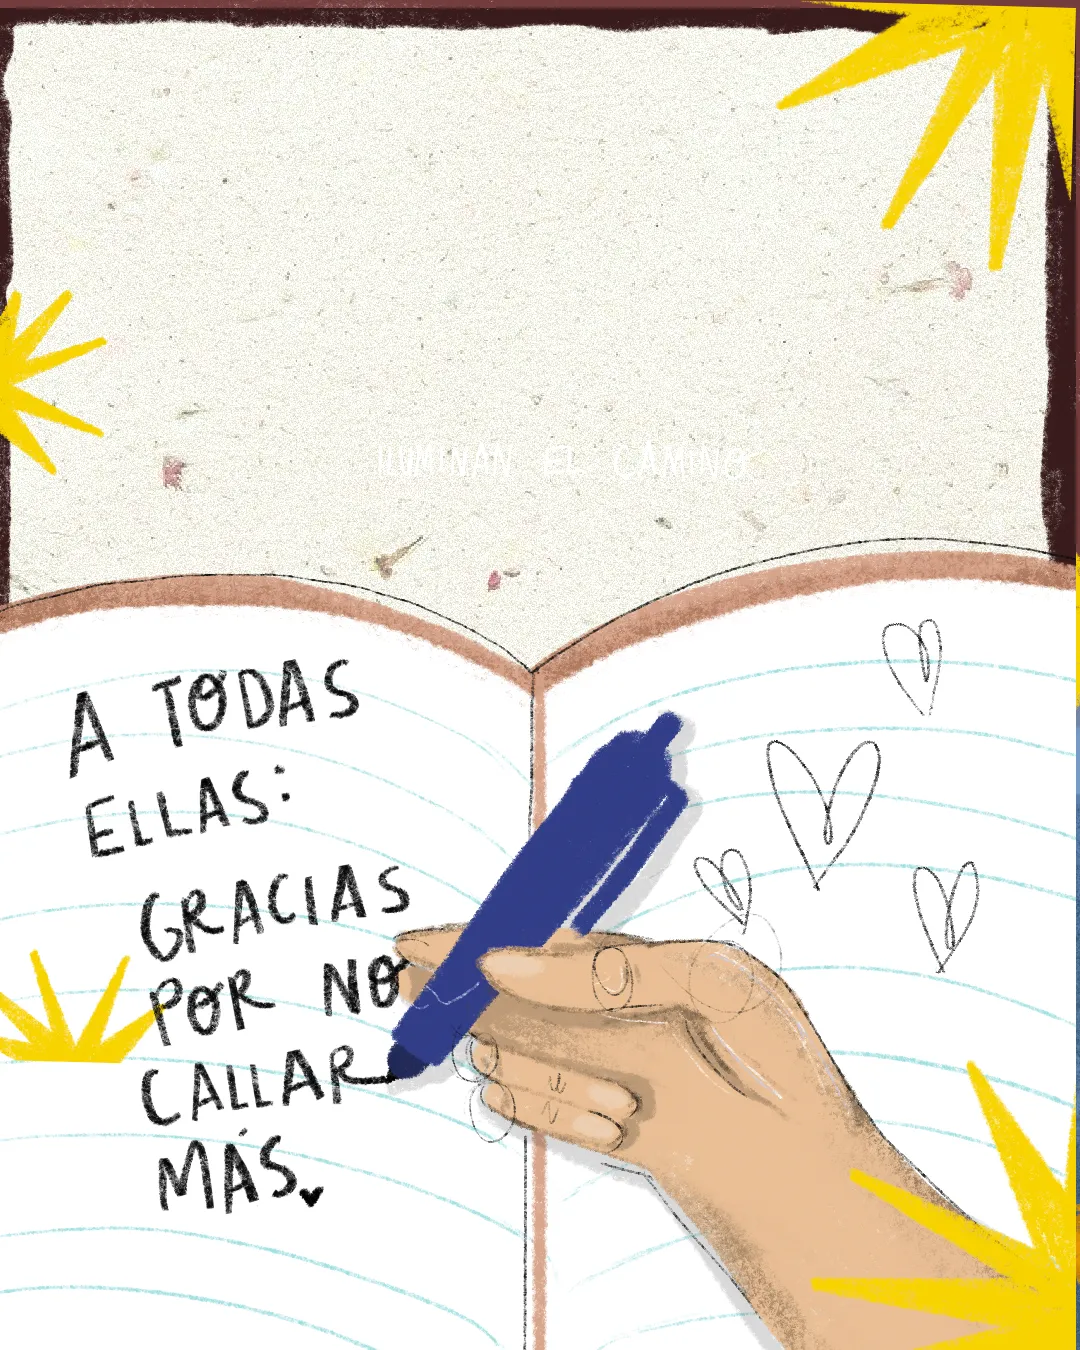 ILUMINAN EL CAMINO
A TODAS
ELLAS:
GRACIAS
POR NO
CALLAR
MÁS